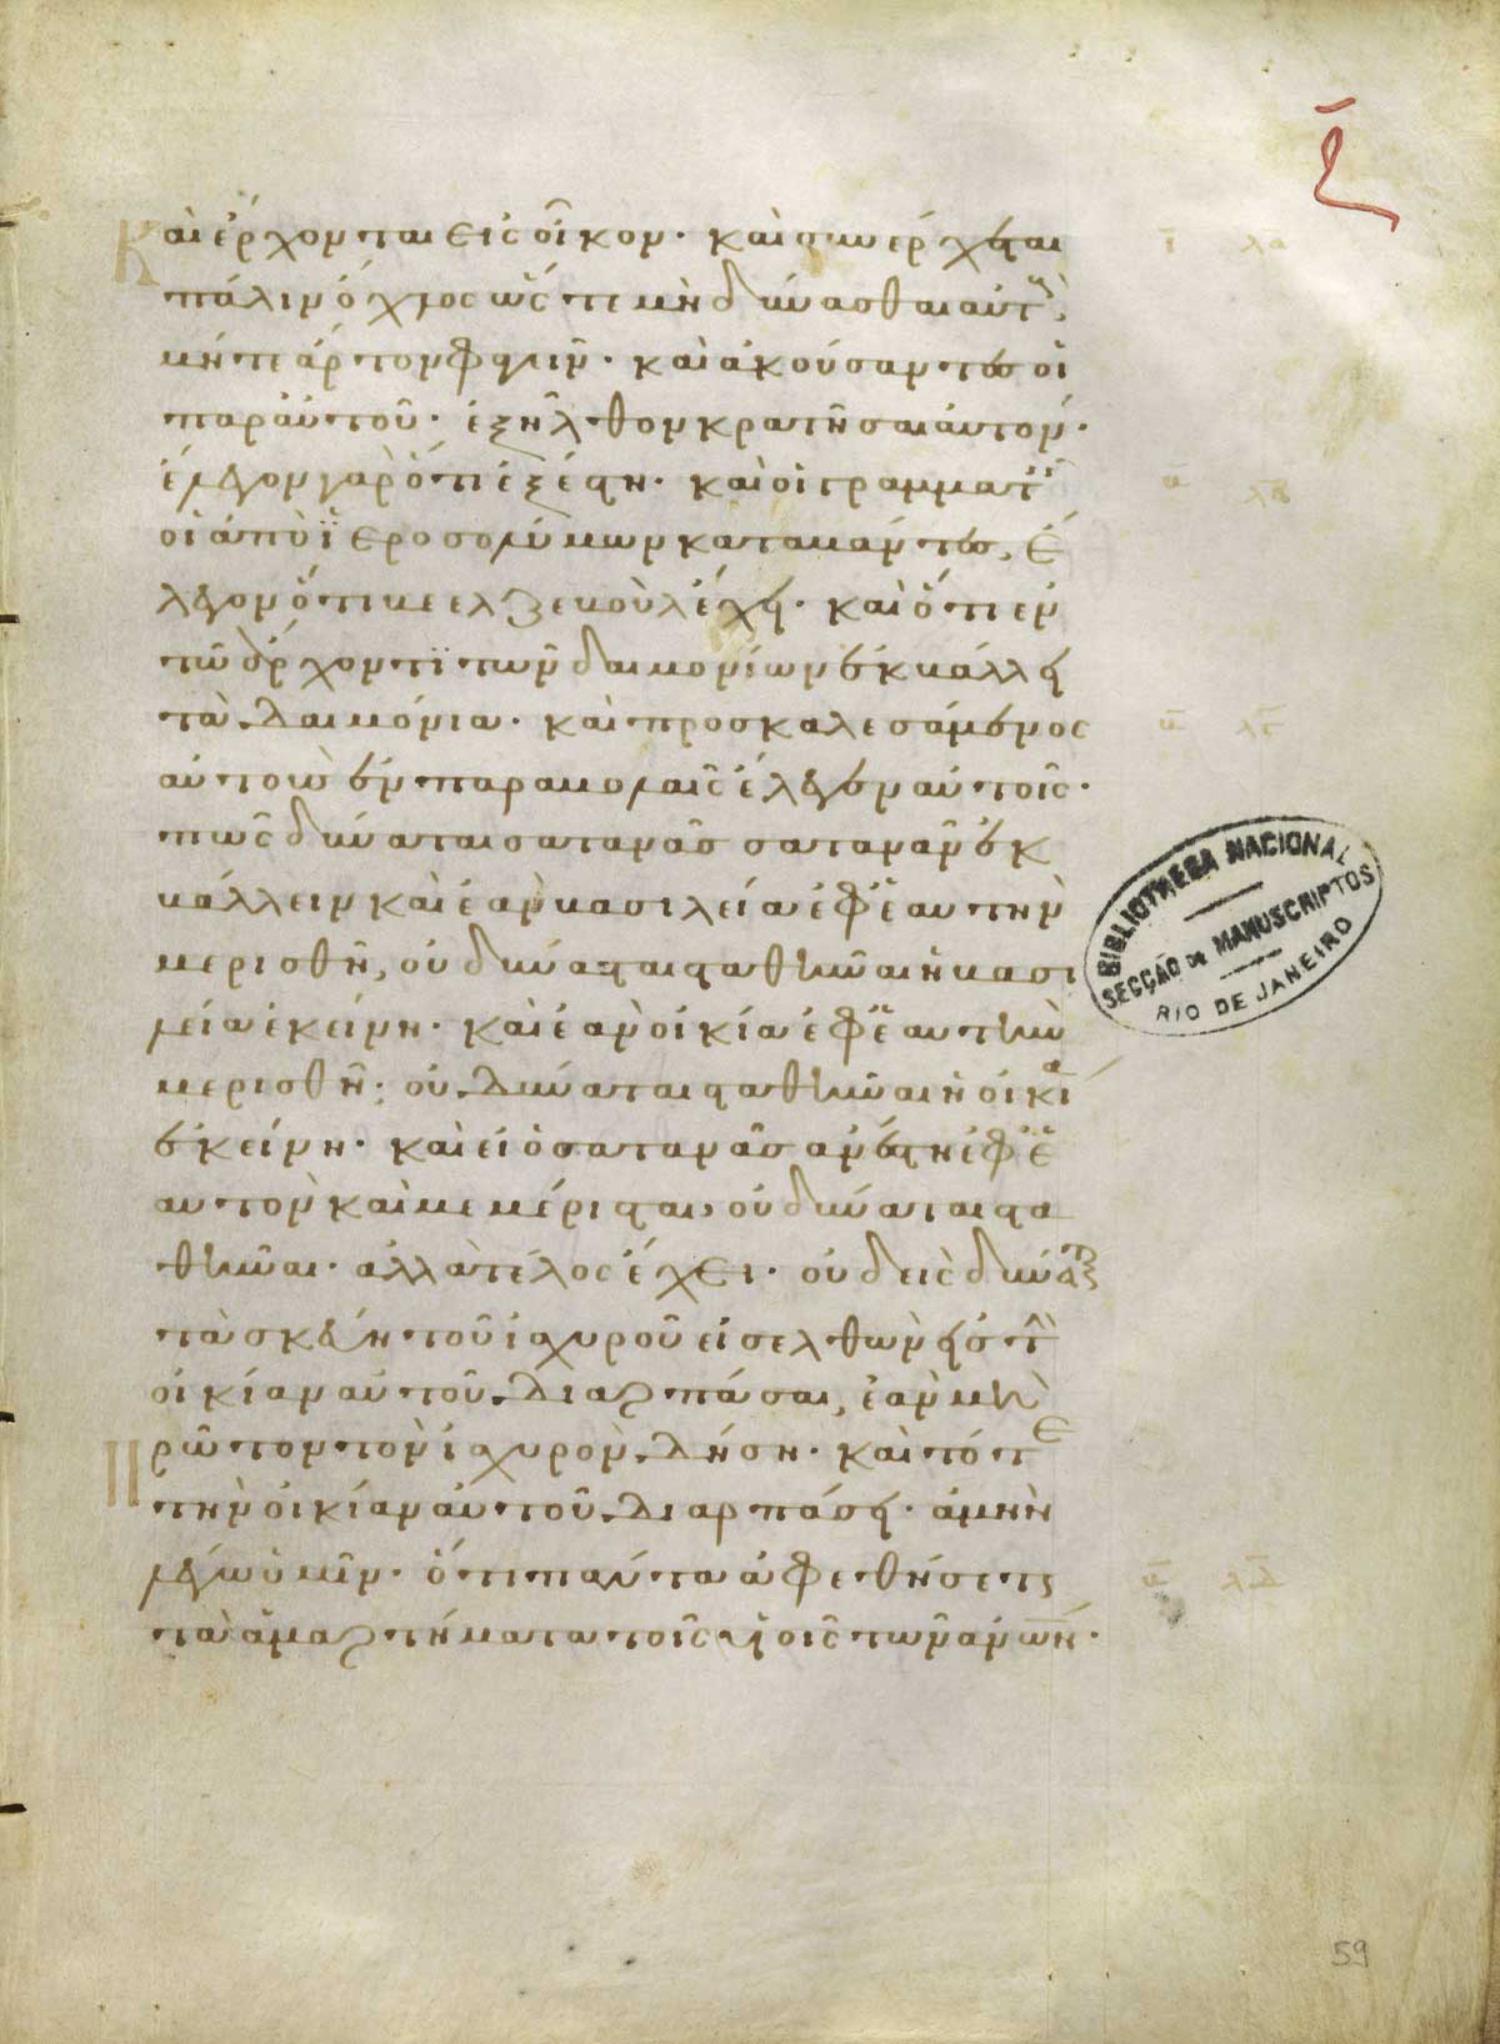 ξ
Καὶ ἔρχονται εἰς οἶκον· καὶ συνέρχεται
πάλιν ὄχλος ὥστε μὴ δύνασθαι αὐτοὺς,
μήτε ἄρτον φαγεῖν· καὶ ἀκούσαντες οἱ
παρ' αὐτοῦ· ἐξῆλθον κρατῆσαι αὐτόν·
ἔλεγον γὰρ ὅτι ἐξέστη· καὶ οἱ γραμματεῖς
οἱ ἀπὸ ϊεροσολύμων καταβάντες, ἔ
λεγον ὅτι βεελζεβοὺλ ἔχει· καὶ ὅτι ἐν
τῶ ἄρχοντϊ τῶν δαιμονίων ἐκβάλλει
τὰ δαιμόνια· καὶ προσκαλεσάμενος
αὐτοὺς ἐν παραβολαῖς ἔλεγεν αὐτοῖς·
πῶς δύναται σατανᾶς σατανᾶν ἐκ
βάλλειν καὶ ἐὰν βασιλεία ἐφ' ἑαυτὴν
μερισθῆ, οὐ δύναται σταθῆναι ἡ βασι
λεία ἐκείνη· καὶ ἐὰν οἰκία ἐφ' ἑαυτὴν
μερισθῆ· οὐ δύναται σταθῆναι ἡ οἰκία
ἐκείνη· καὶ εἰ ὁ σατανᾶς ἀνέστη ἐφ' ἑ
αυτὸν καὶ μεμέρισται, οὐ δύναται στα
θῆναι· ἀλλὰ τέλος ἔχει· οὐδεὶς δύναται
τὰ σκεύη τοῦ ἰσχυροῦ εἰσελθὼν εἰς τὴν
οἰκίαν αὐτοῦ διαρπάσαι, ἐὰν μὴ
Πρῶτον τὸν ἰσχυρὸν δήση· καὶ τότε
τὴν οἰκίαν αὐτοῦ διαρπάσει· ἀμὴν
λέγω ὑμῖν· ὅτι πάντα ἀφεθήσεται
τὰ ἁμαρτήματα τοῖς υἱοῖς τῶν ἀνων·
λα
λβ
λγ
λδ
BIBLIOTHECA NACIONAL
SECÇÃO DE MANUSCRIPTOS
RIO DE JANEIRO
59